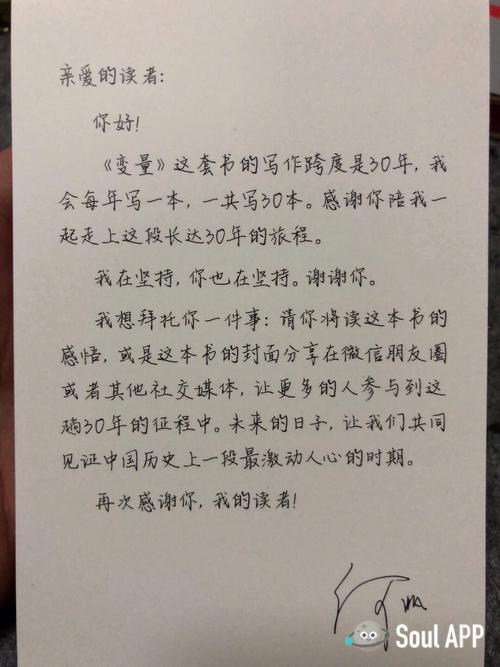 亲爱的读者：
你好！
《变量》这套书的写作跨度是30年，我
会每年写一本，一共写30本。感谢你陪我一
起走上这段长达30年的旅程。
我在坚持，你也在坚持。谢谢你。
我想拜托你一件事：请你将读这本书的
感悟，或是这本书的封面分享在微信朋友圈
或者其他社交媒体，让更多的人参与到这
趟30年的征程中。未来的日子，让我们共同
见证中国历史上一段最激动人心的时期。
再次感谢你，我的读者！
何帆
Soul APP